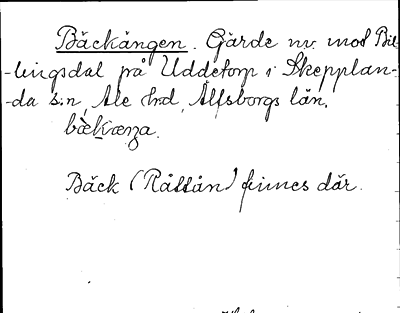 Bäckängen. Gärde nv. mot Bil-
-lingsdal på Uddetorp i Skepplan-
-da s:n, Ale hd, Älfsborgs län.
bækæŋa.
Bäck (Råttån) finnes där.